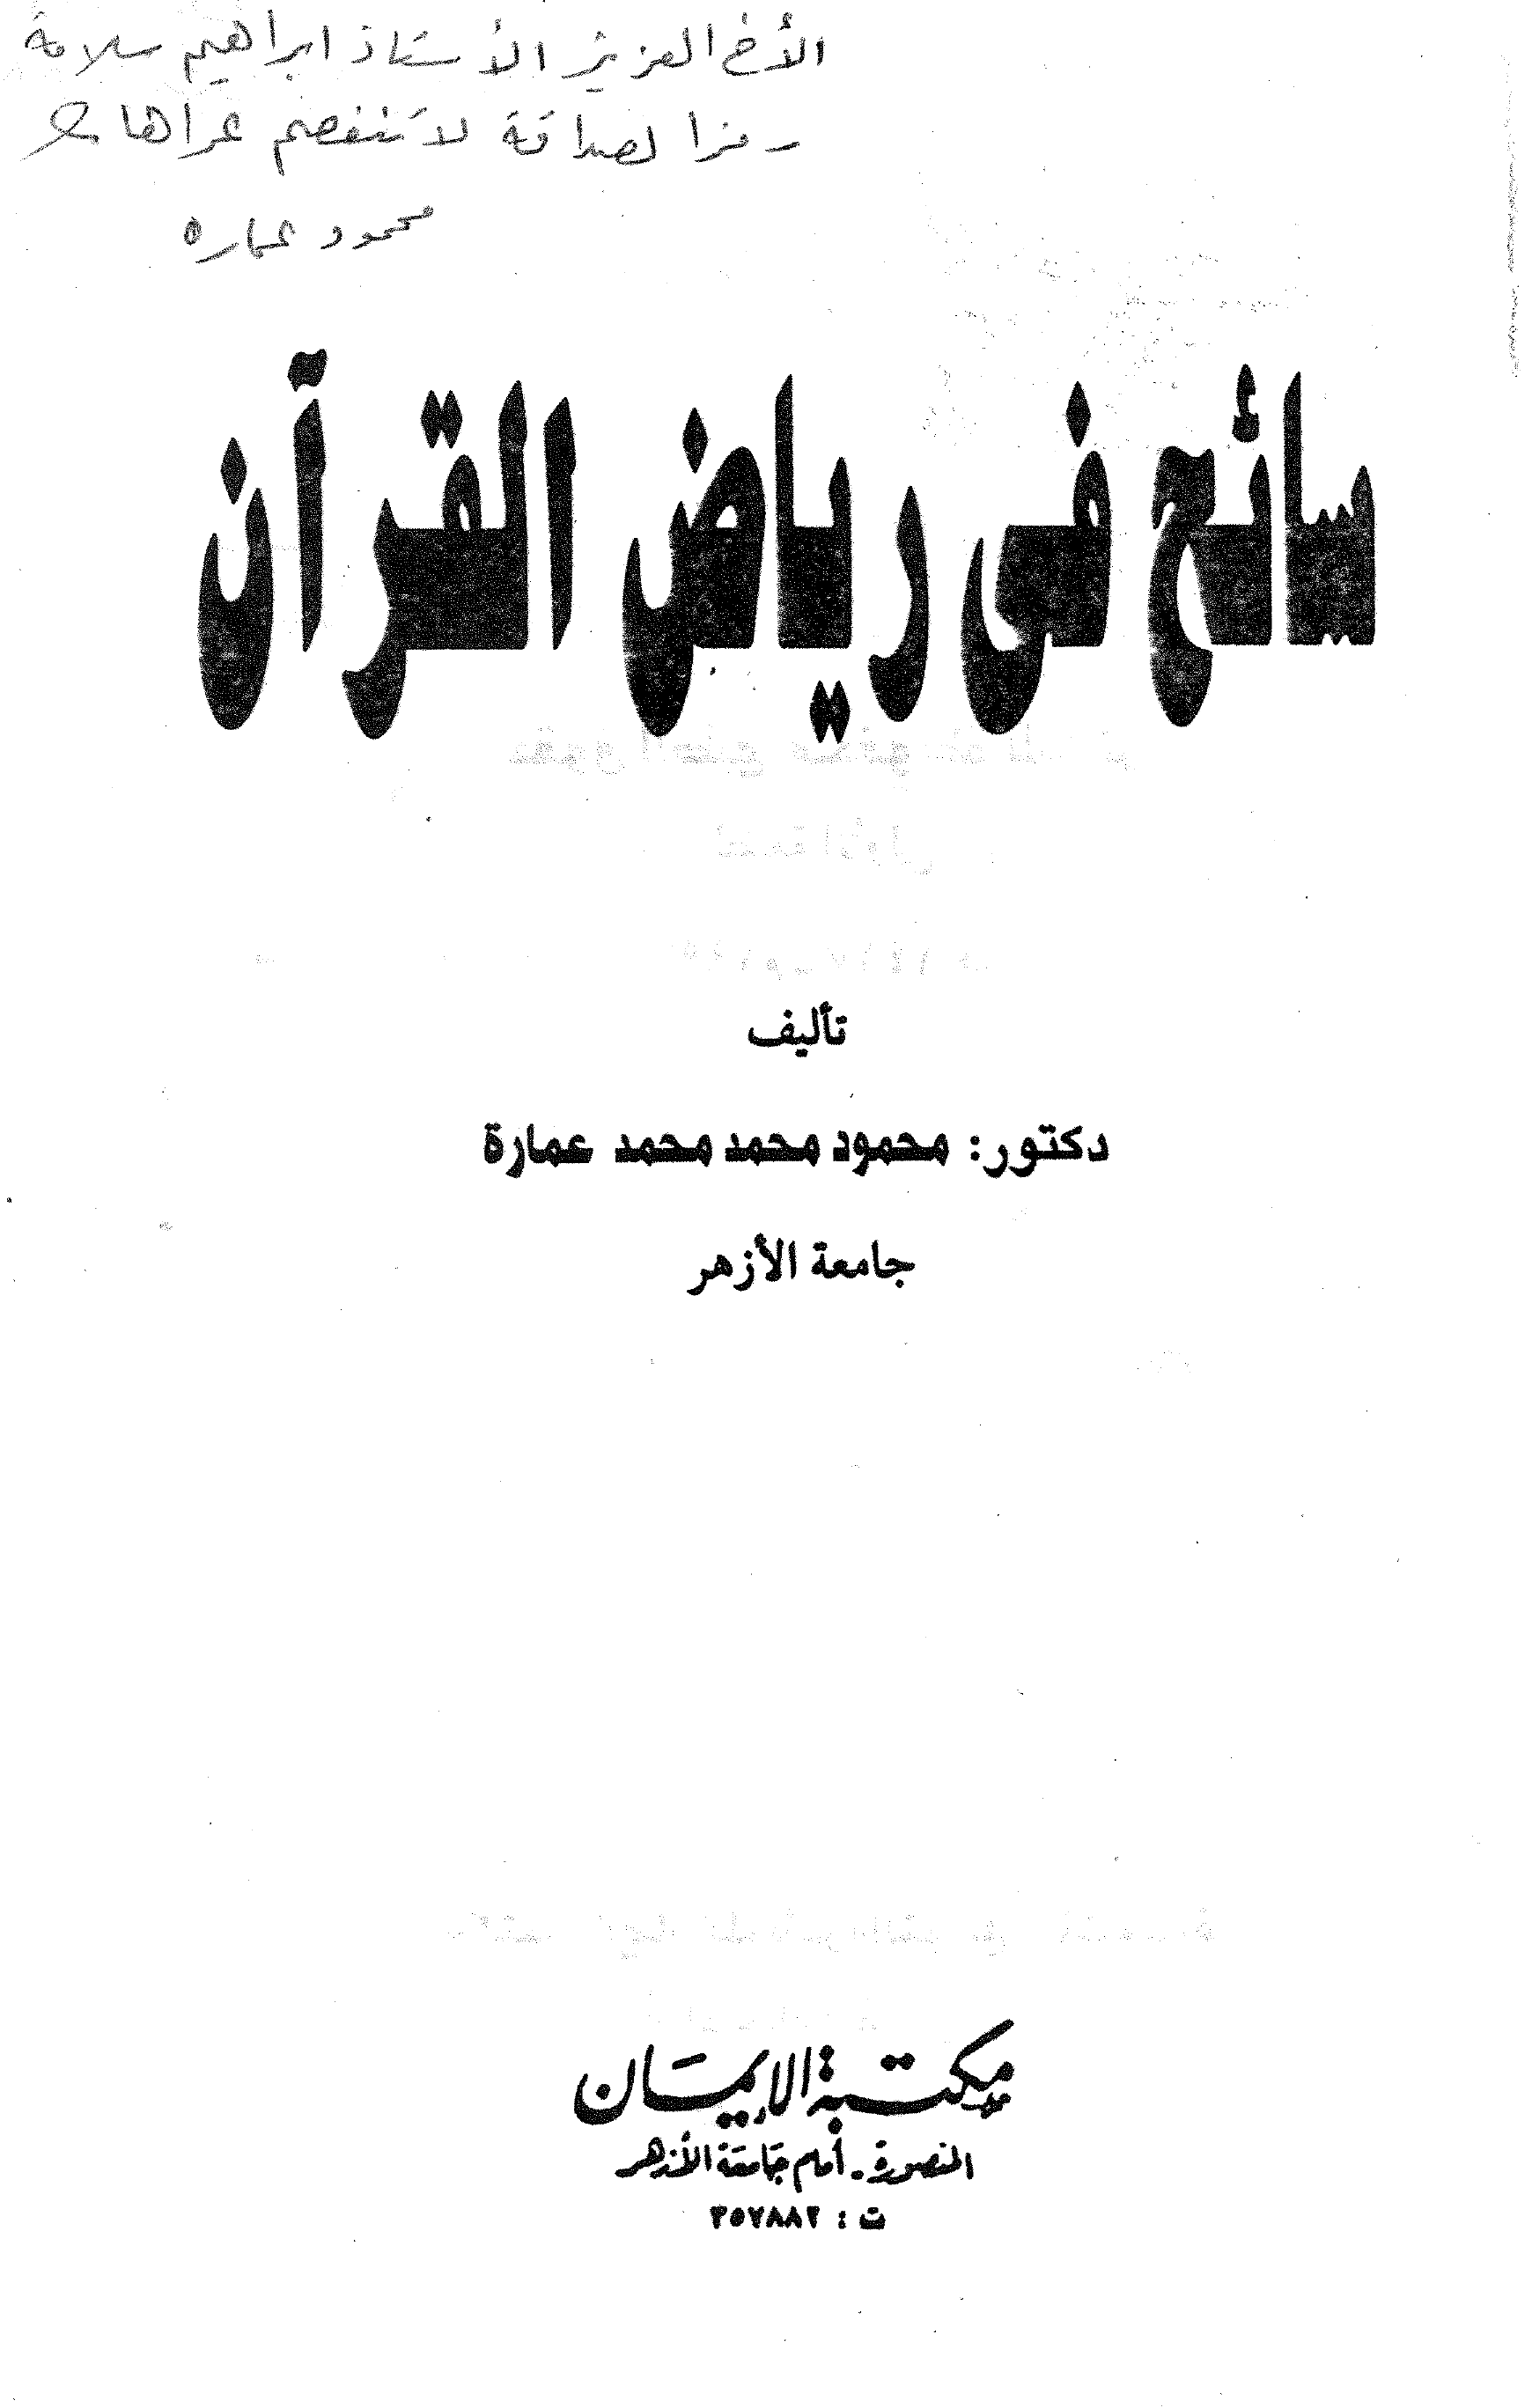 الأخ العزيز الأستاذ ابراهيم سلامة
رمزا لصداقة لا تنفصم عراها
محمود عماره
سائح فى رياض القرآن
تأليف
دكتور: محمود محمد محمد عمارة
جامعة الأزهر
مكتبة الإيمان
المنصورة - أمام جامعة الأزهر
ت : ٣٥٧٨٨٢